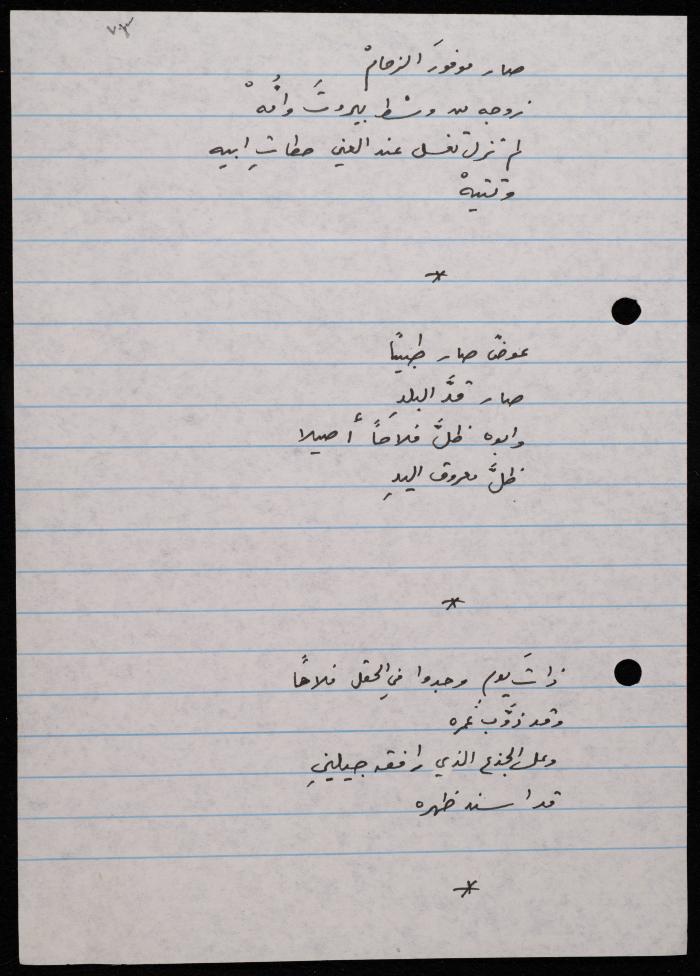 ٧٣
صار موفورَ الزحامْ
زوجه من وسْط بيروتَ وأُمّهْ
لم تزل تغسل عند العين حطاتِ ابيه
وتتيهْ
*
عوضٌ صار طبيبًا
صار قدَّ البلدِ
وابوه ظلَّ فلاحاً أصيلا
ظلَّ معروق اليدِ
*
ذاتَ يوم وجدوا في الحقل فلاحاً
وقد ذوَّب عمره
وعلى الجذع الذي رافقه جيلينِ
قد اسند ظهره
*